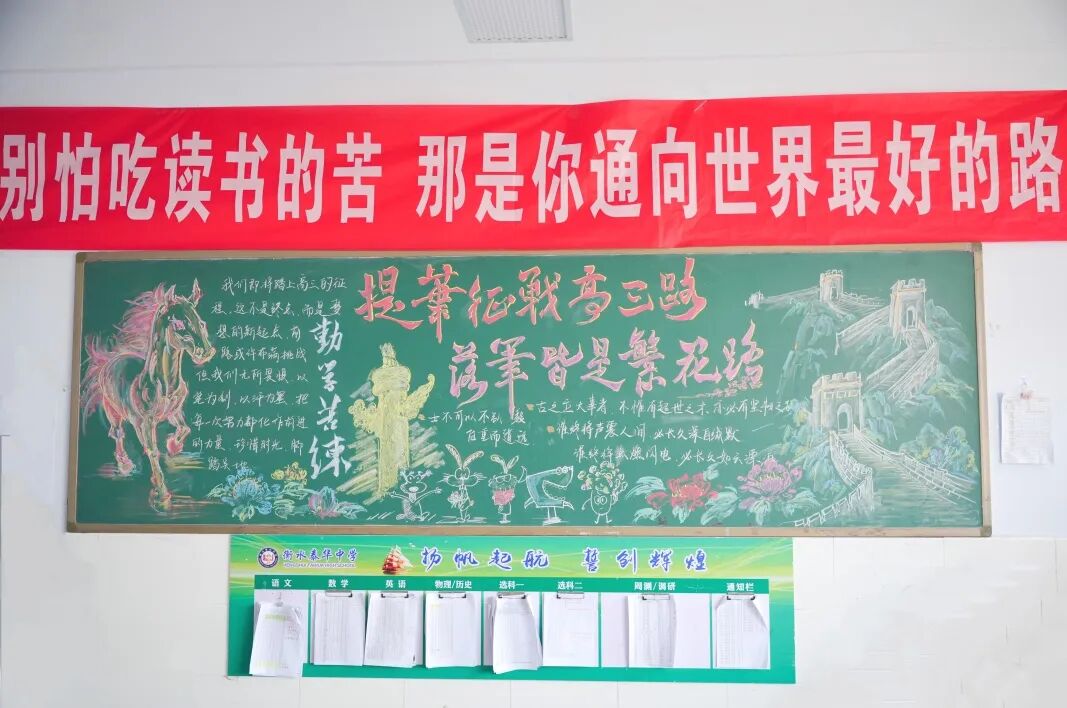 别怕吃读书的苦 那是你通向世界最好的路
提笔征战高三路
落笔皆是繁花路
我们即将踏上高三的征
程,这不是终点,而是梦
想的新起点,前
路或许布满挑战
但我们无所畏惧,以
笔为剑,以汗为墨,把
每一次努力都化作前进
的力量,珍惜时光,脚
踏实地
勤学苦练
士不可以不弘毅
任重而道远
古之立大事者,不惟有超世之才,亦必有坚韧之
谁终将声震人间 必长久深自缄默
谁终将点燃闪电,必长久如云漂泊
衡水泰华中学
HENGSHUI TAIHUA HIGH SCHOOL
扬帆起航 誓创辉煌
语文 数学 英语 物理/历史 选科一 选科二 周测/调研 通知栏